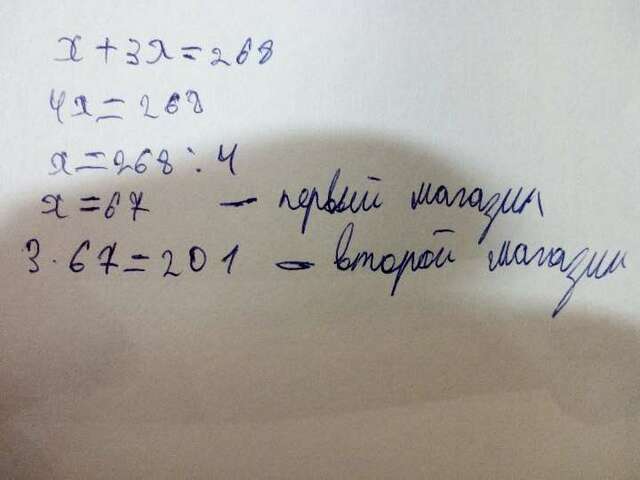 x + 3x = 268
4x = 268
x = 268 : 4
x = 67 - первый магазин
3 · 67 = 201 - второй магазин